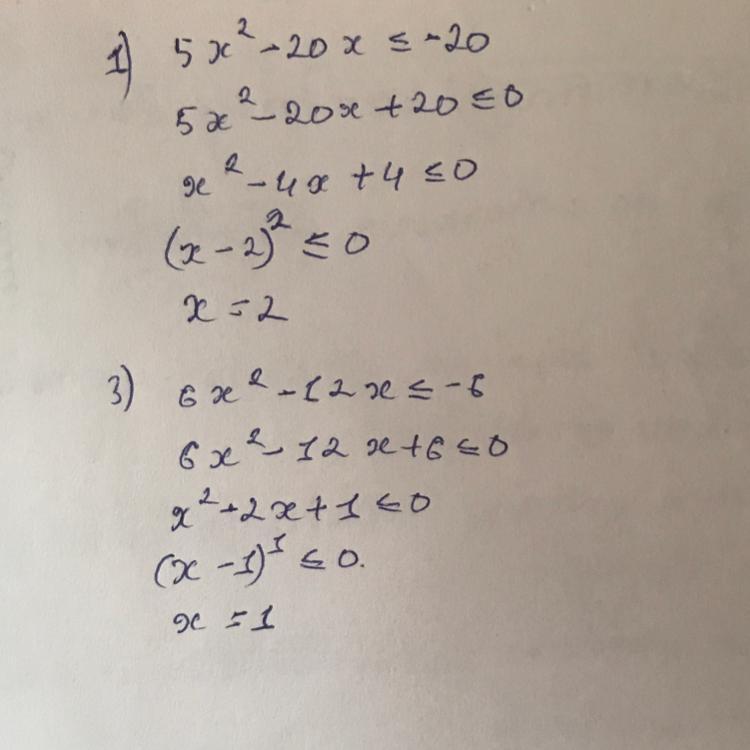 1) 5x² - 20x ≤ -20
5x² - 20x + 20 ≤ 0
x² - 4x + 4 ≤ 0
(x - 2)² ≤ 0
x = 2
3) 6x² - 12x ≤ -6
6x² - 12x + 6 ≤ 0
x² - 2x + 1 ≤ 0
(x - 1)¹ ≤ 0.
x = 1